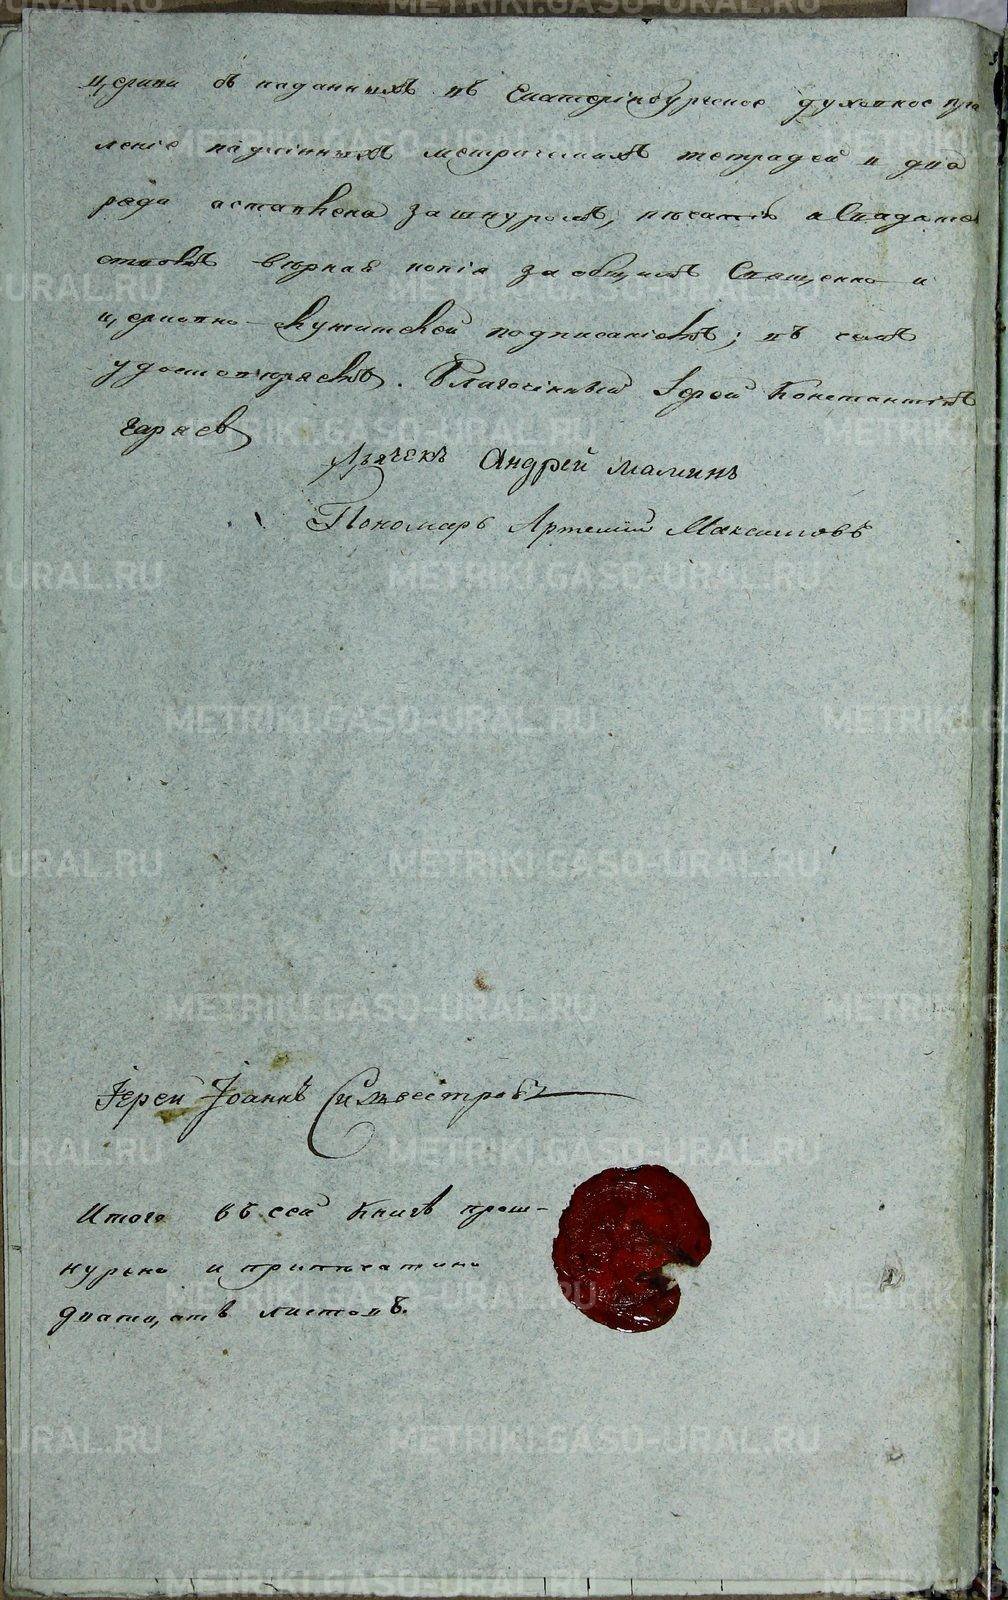 церкви съ поданныхъ въ Екатерінбургское духовное пра
леніе подлінныхъ метрическихъ тетрадей и два
ряда оставлена за шнуромъ, печатью
ствомъ верная копія за общимъ Священно и
церковно-служительскимъ подписаніемъ; въ семъ
удостоверяемъ. Благочінный Іерей Константінъ
Гаряев
Дьячекъ Андрей Маминъ
Пономарь Артемій Максимовъ
Іерей Іоаннъ Сильвестровъ
Итого въ сей книге прош-
нурено и припечатано
дватцать листовъ.
METRIKI.GASO-URAL.RU